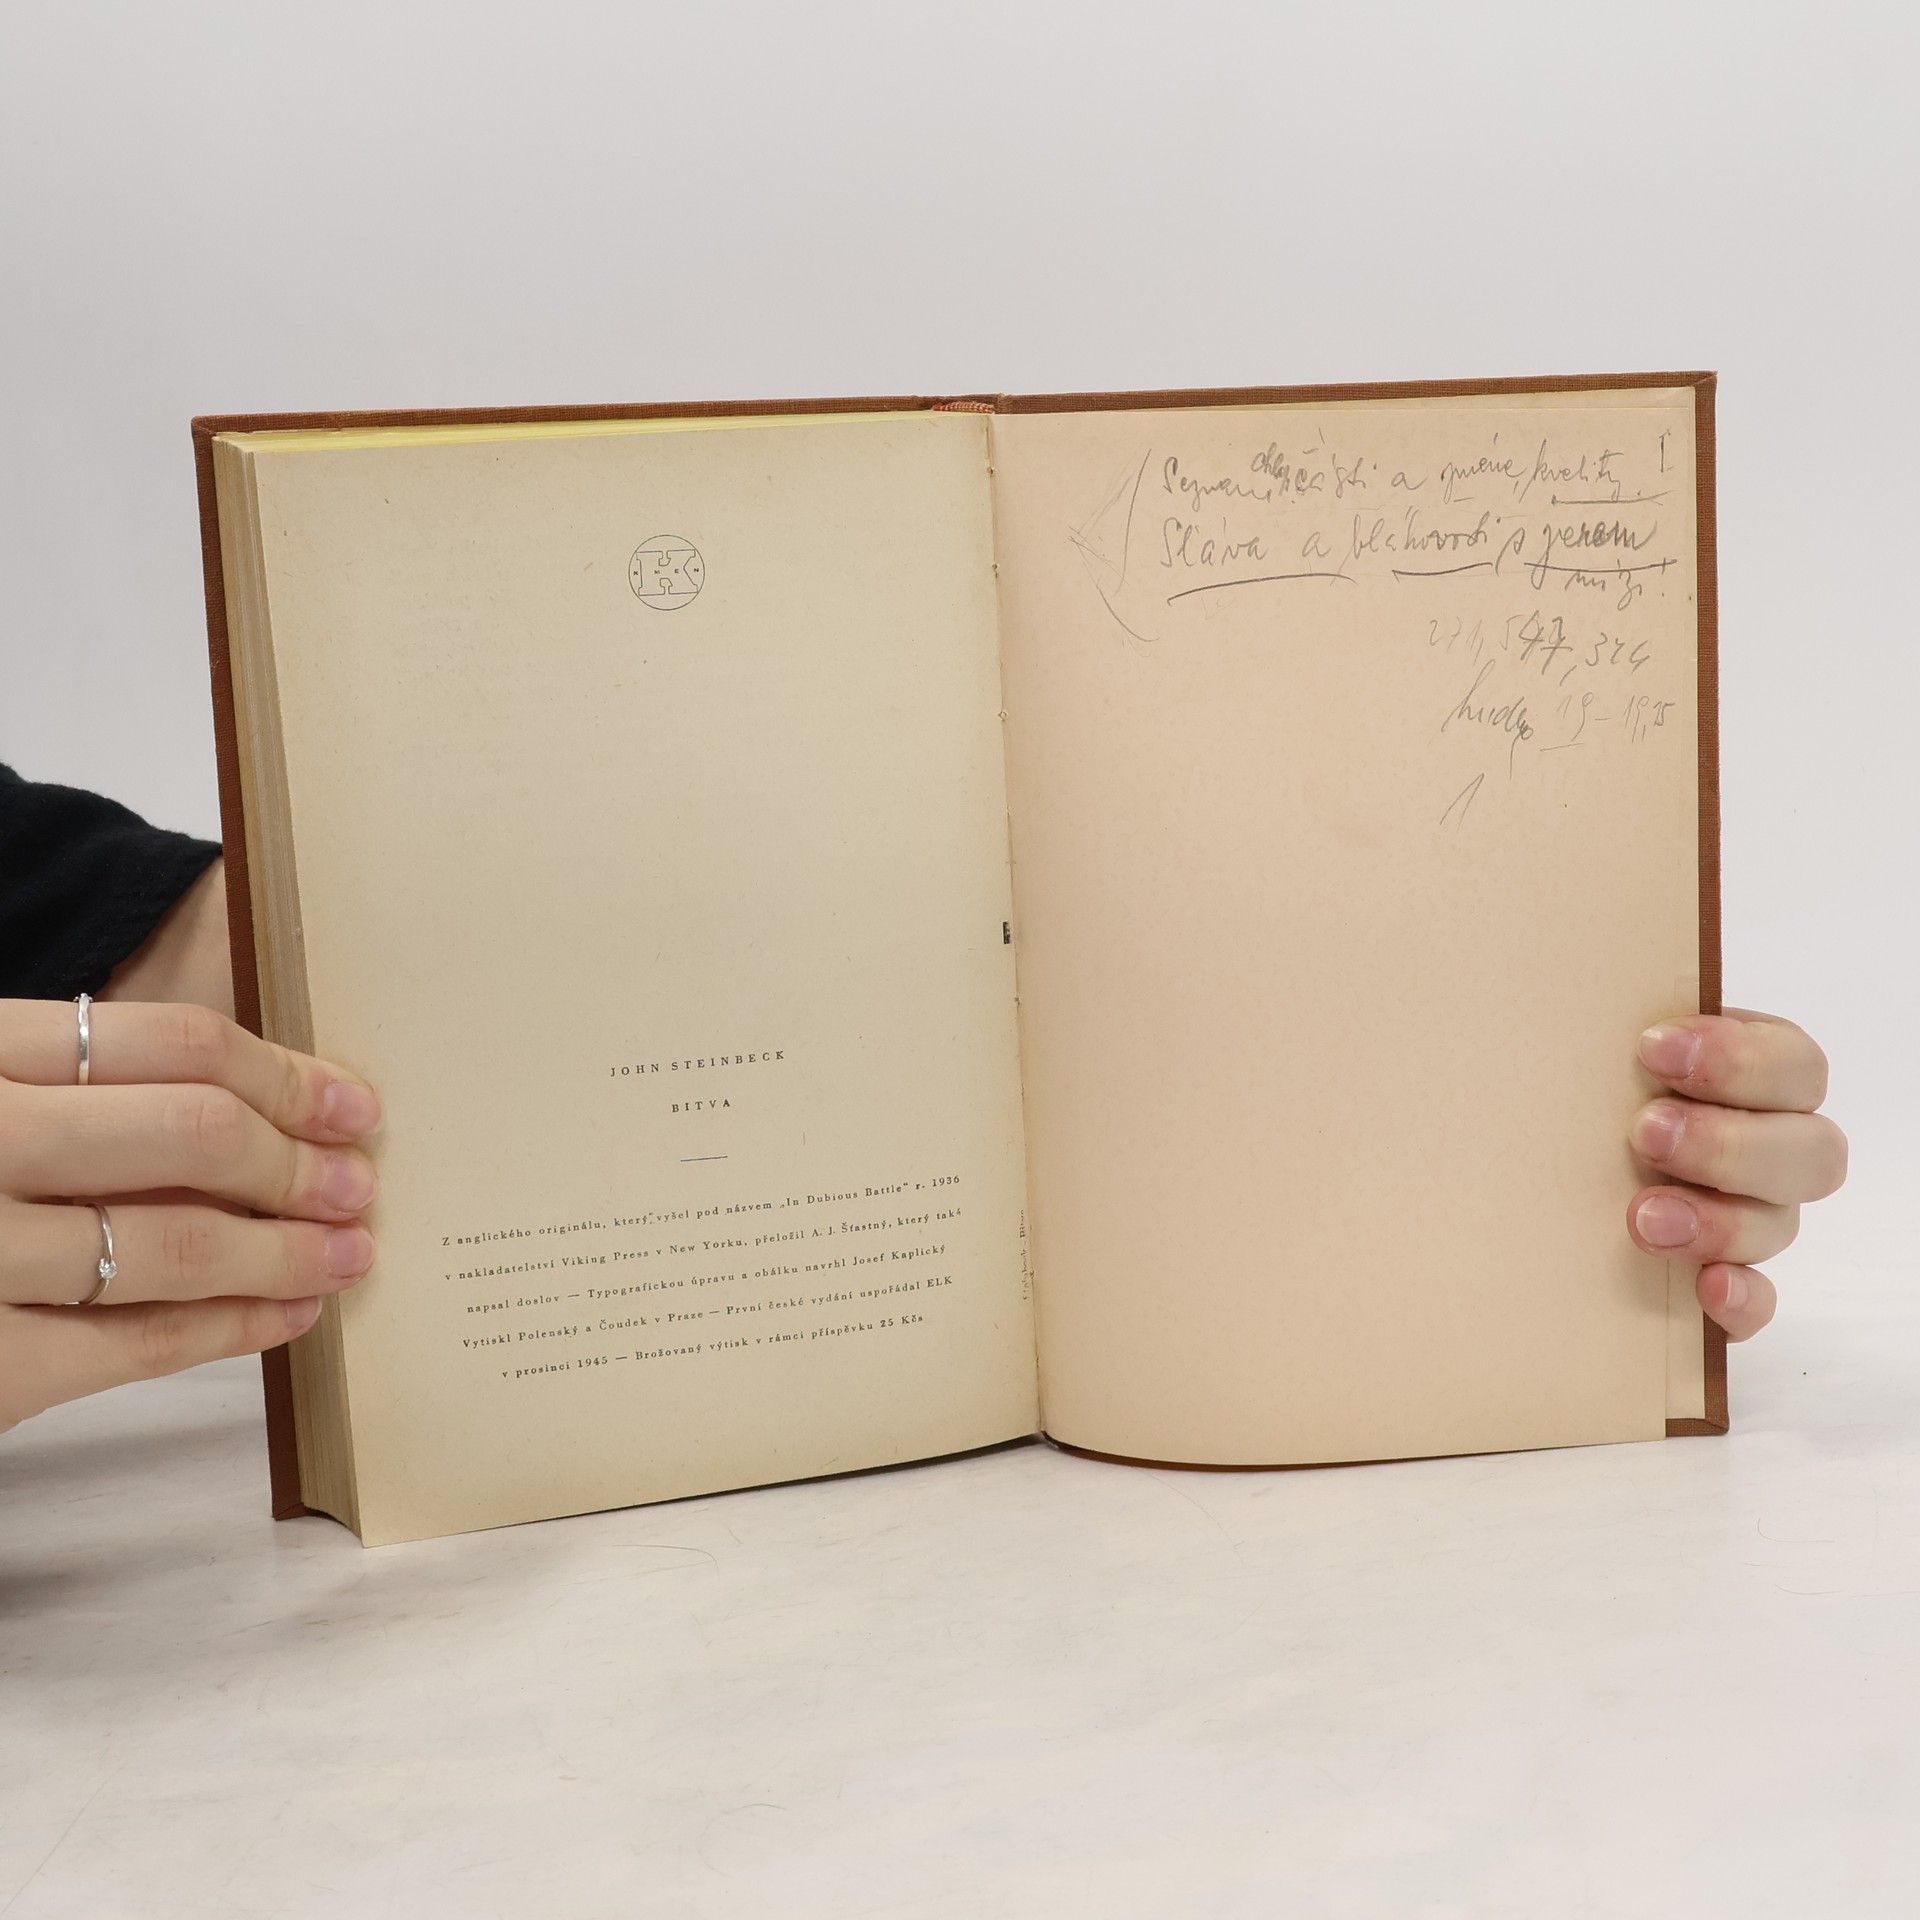 K
KMEN
JOHN STEINBECK
BITVA
Z anglického originálu, který vyšel pod názvem „In Dubious Battle“ r. 1936
v nakladatelství Viking Press v New Yorku, přeložil A. J. Šťastný, který také
napsal doslov — Typografickou úpravu a obálku navrhl Josef Kaplický
Vytiskl Polenský a Čoudek v Praze — První české vydání uspořádal ELK
v prosinci 1945 — Brožovaný výtisk v rámci příspěvku 25 Kčs
části a jméne, kvality. I
Sláva a bláhovosti s jerem
mizí!
324
19 – 19,15
1